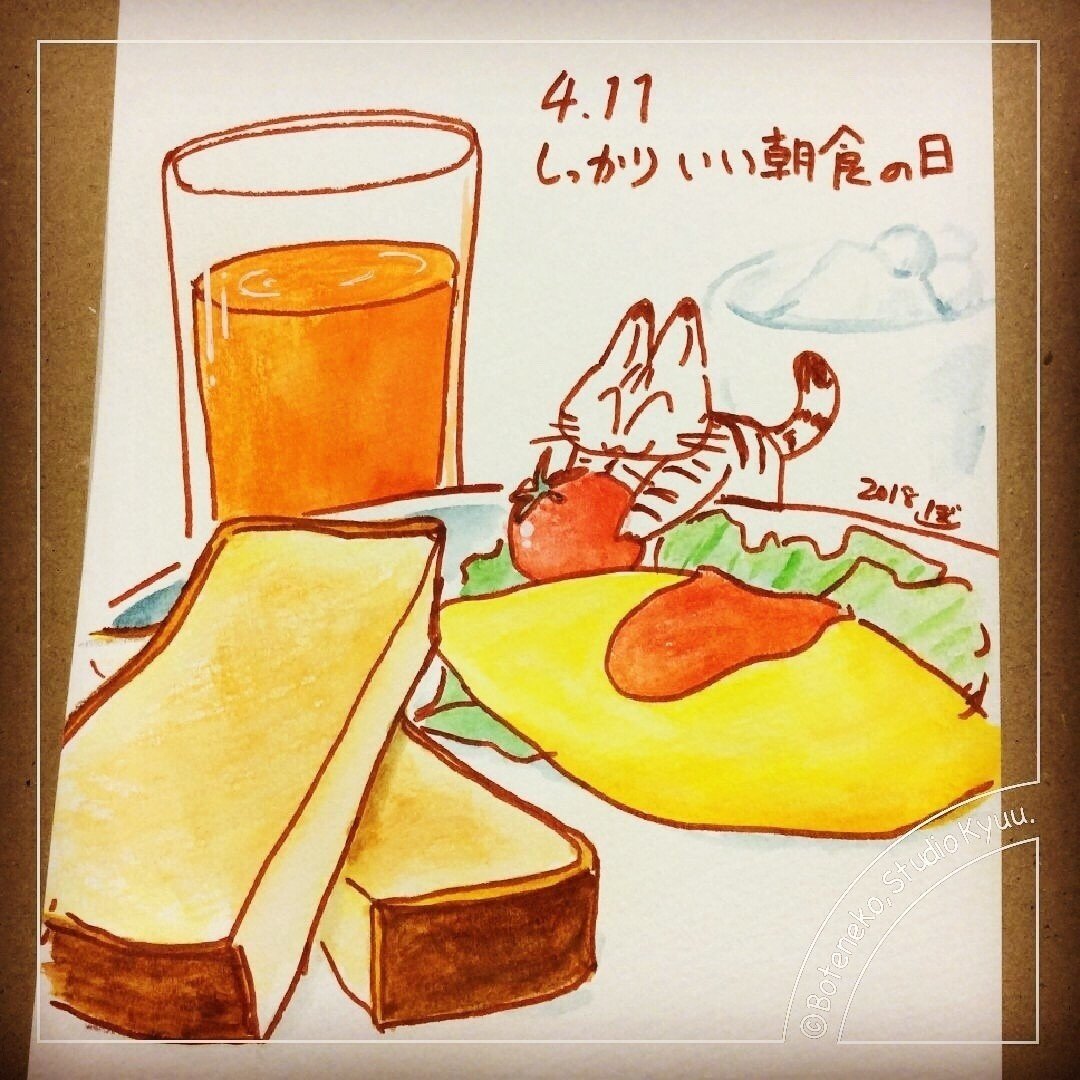 4.11
しっかりいい朝食の日
2018 ぼ
©Boteneko, Studio Kyuu.